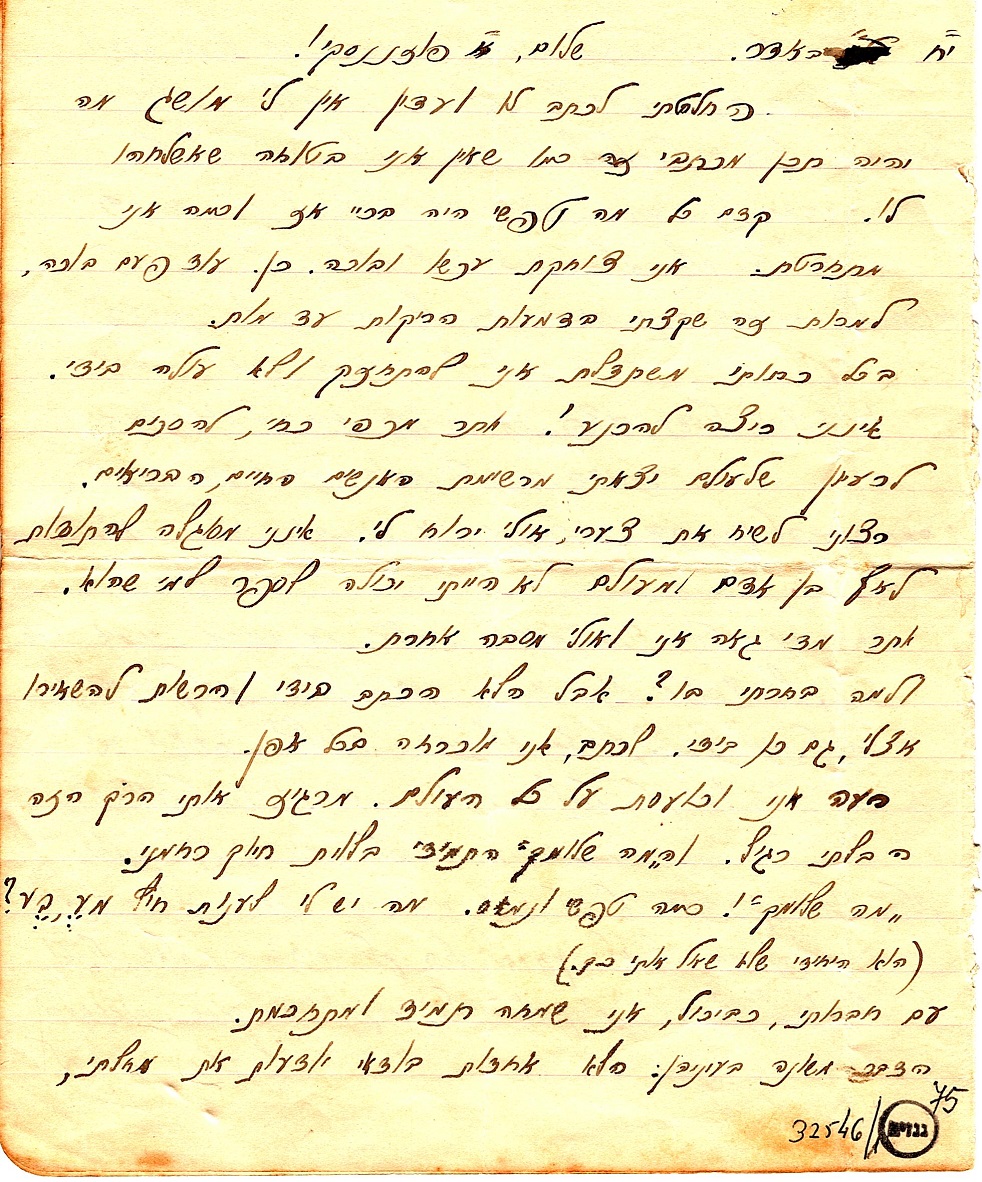 י"ח באדר. שלום, א' פוזננסקי!
החלטתי לכתב לו ועדין אין לי מושג מה
יהיה תכן מכתבי זה כמו שאין אני בטוחה שאשלחהו
לו. קדם כל מה טפשי היה בכיי אז וכמה אני
מתחרטת. אני צוחקת עכשו ובוכה. כן. עוד פעם בוכה,
למרות זה שקצתי בדמעות הריקות עד מות.
בכל כחותי משתדלת אני להתחזק ולא עולה בידי.
אינני רוצה להכנע! יותר מכפי כחי, להסכים
לרעיון שלעולם יצאתי מרשימת האנשים החיים, הבריאים.
רצוני לשיח את צערי, אולי ירוח לי. אינני מסוגלה להתודות
לאף בן אדם ומעולם לא הייתי יכולה לספר למי שהוא.
יותר מדי גאה אני ואולי מסבה אחרת.
ולמה בחרתי בו? אבל הלא הכתב בידי והרשות להשאירו
אצלי, גם כן בידי. לכתב, אני מוכרחה בכל אפן.
רעה אני וכועסת על כל העולם. מרגיז אותי הרֹק הזה
הבלתי רגיל. וה„מה שלומך" התמידי בלוית חיוך רחמני.
„מה שלומך"! כמה טפש ונמאס. מה יש לי לענות חוץ
(הוא היחידי שלא שאל אותי כך.)
עם חברותי, כביכול, אני שמחה תמיד ומתחכמת.
הדבר משונה בעיניהן: הלא אחדות בודאי יודעות את מחלתי,
75
גנזים
32546/1